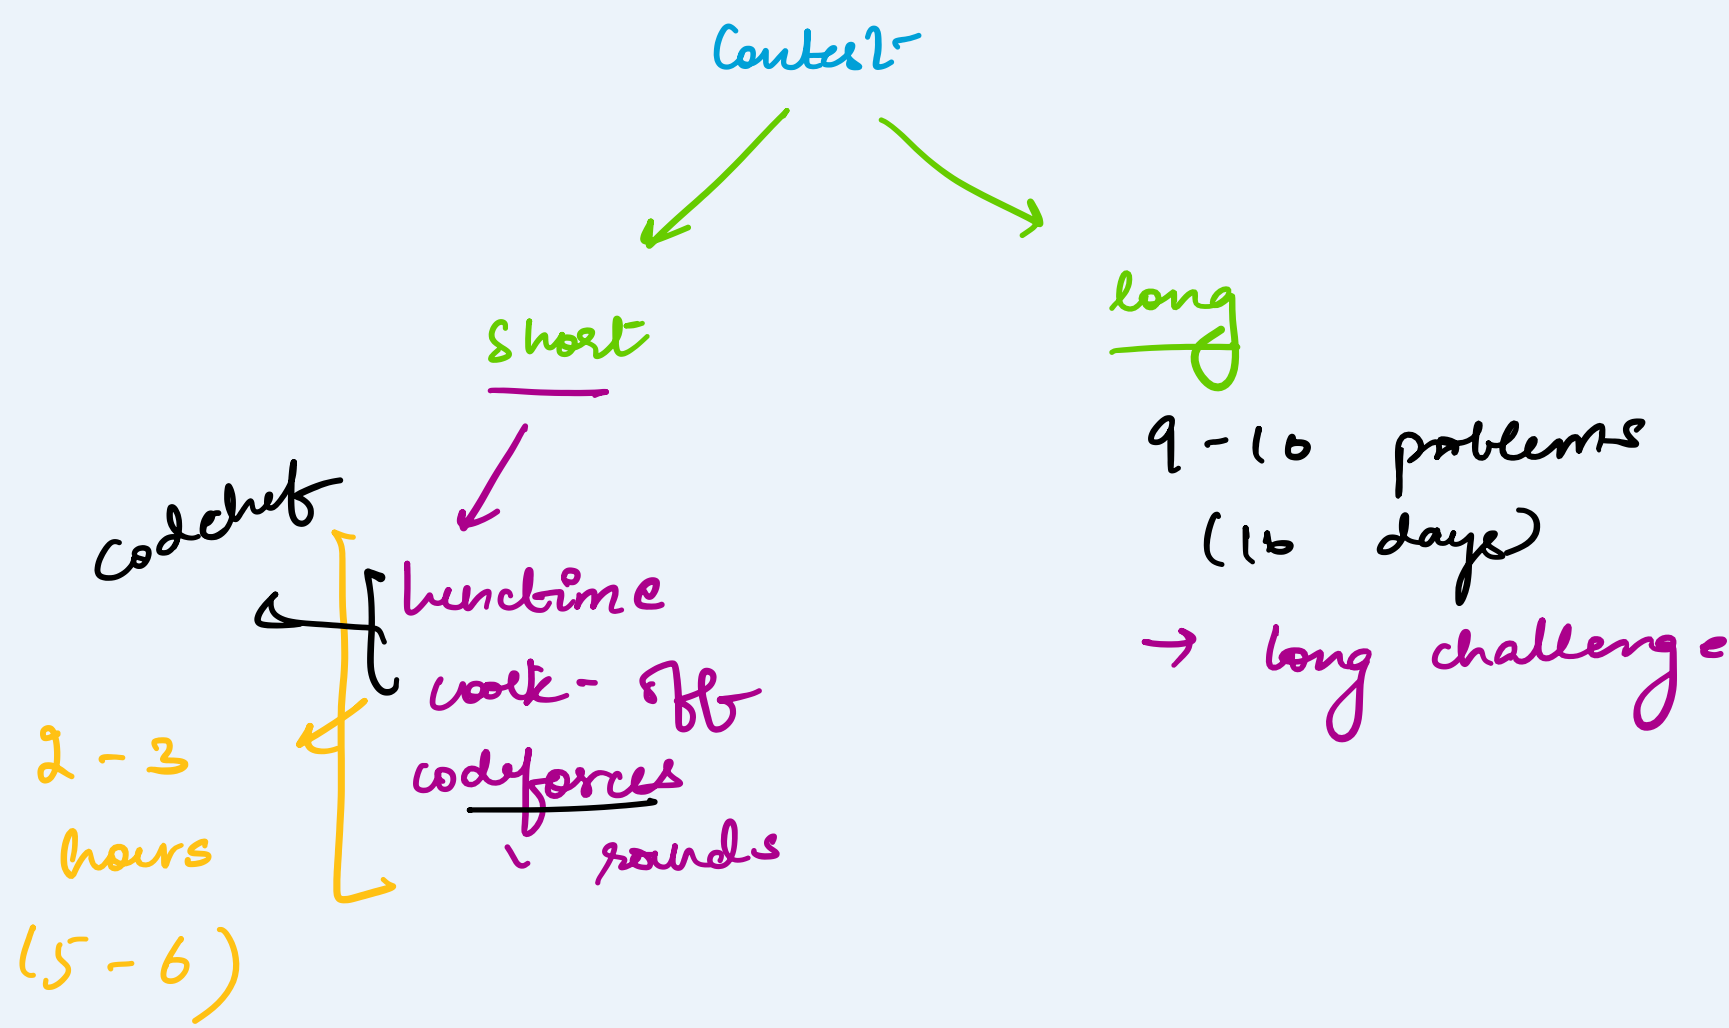 Contest
short
long
9-10 problems
(10 days)
→ long challenge
codechef
lunchtime
cook-off
codeforces
rounds
2-3
hours
(5-6)